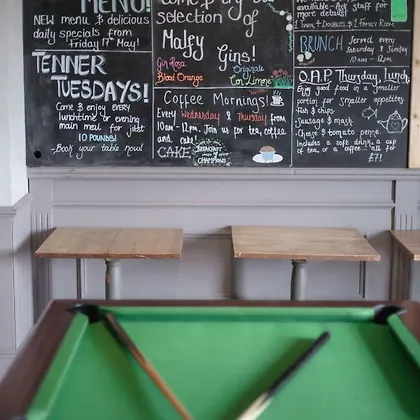 MENU!
NEW menu & delicious
daily specials from
Friday 17th May!
TENNER
TUESDAYS!
Come & enjoy EVERY
lunchtime or evening
main meal for just
10 POUNDS!
-Book your table now!
selection of
Malfy
Gins!
Gin Rosa
Originale
Blood Orange
Con Limone
Coffee Mornings!
Every Wednesday & Thursday from
10am - 12pm. Join us for tea, coffee
and cake!
CAKE
BREAKFAST
OF
CHAMPIONS
available - Ask staff for
more details!
1 Twin, 4 Doubles & 1 Family Room
BRUNCH Served every
Saturday & Sunday
10am - 12pm.
O.A.P Thursday Lunch
Enjoy good food in a smaller
portion for smaller appetites
-Fish & chips
-Sausage & mash
-Cheese & tomato penne.
Includes a soft drink, a cup
of tea, or a coffee... all for
£7!